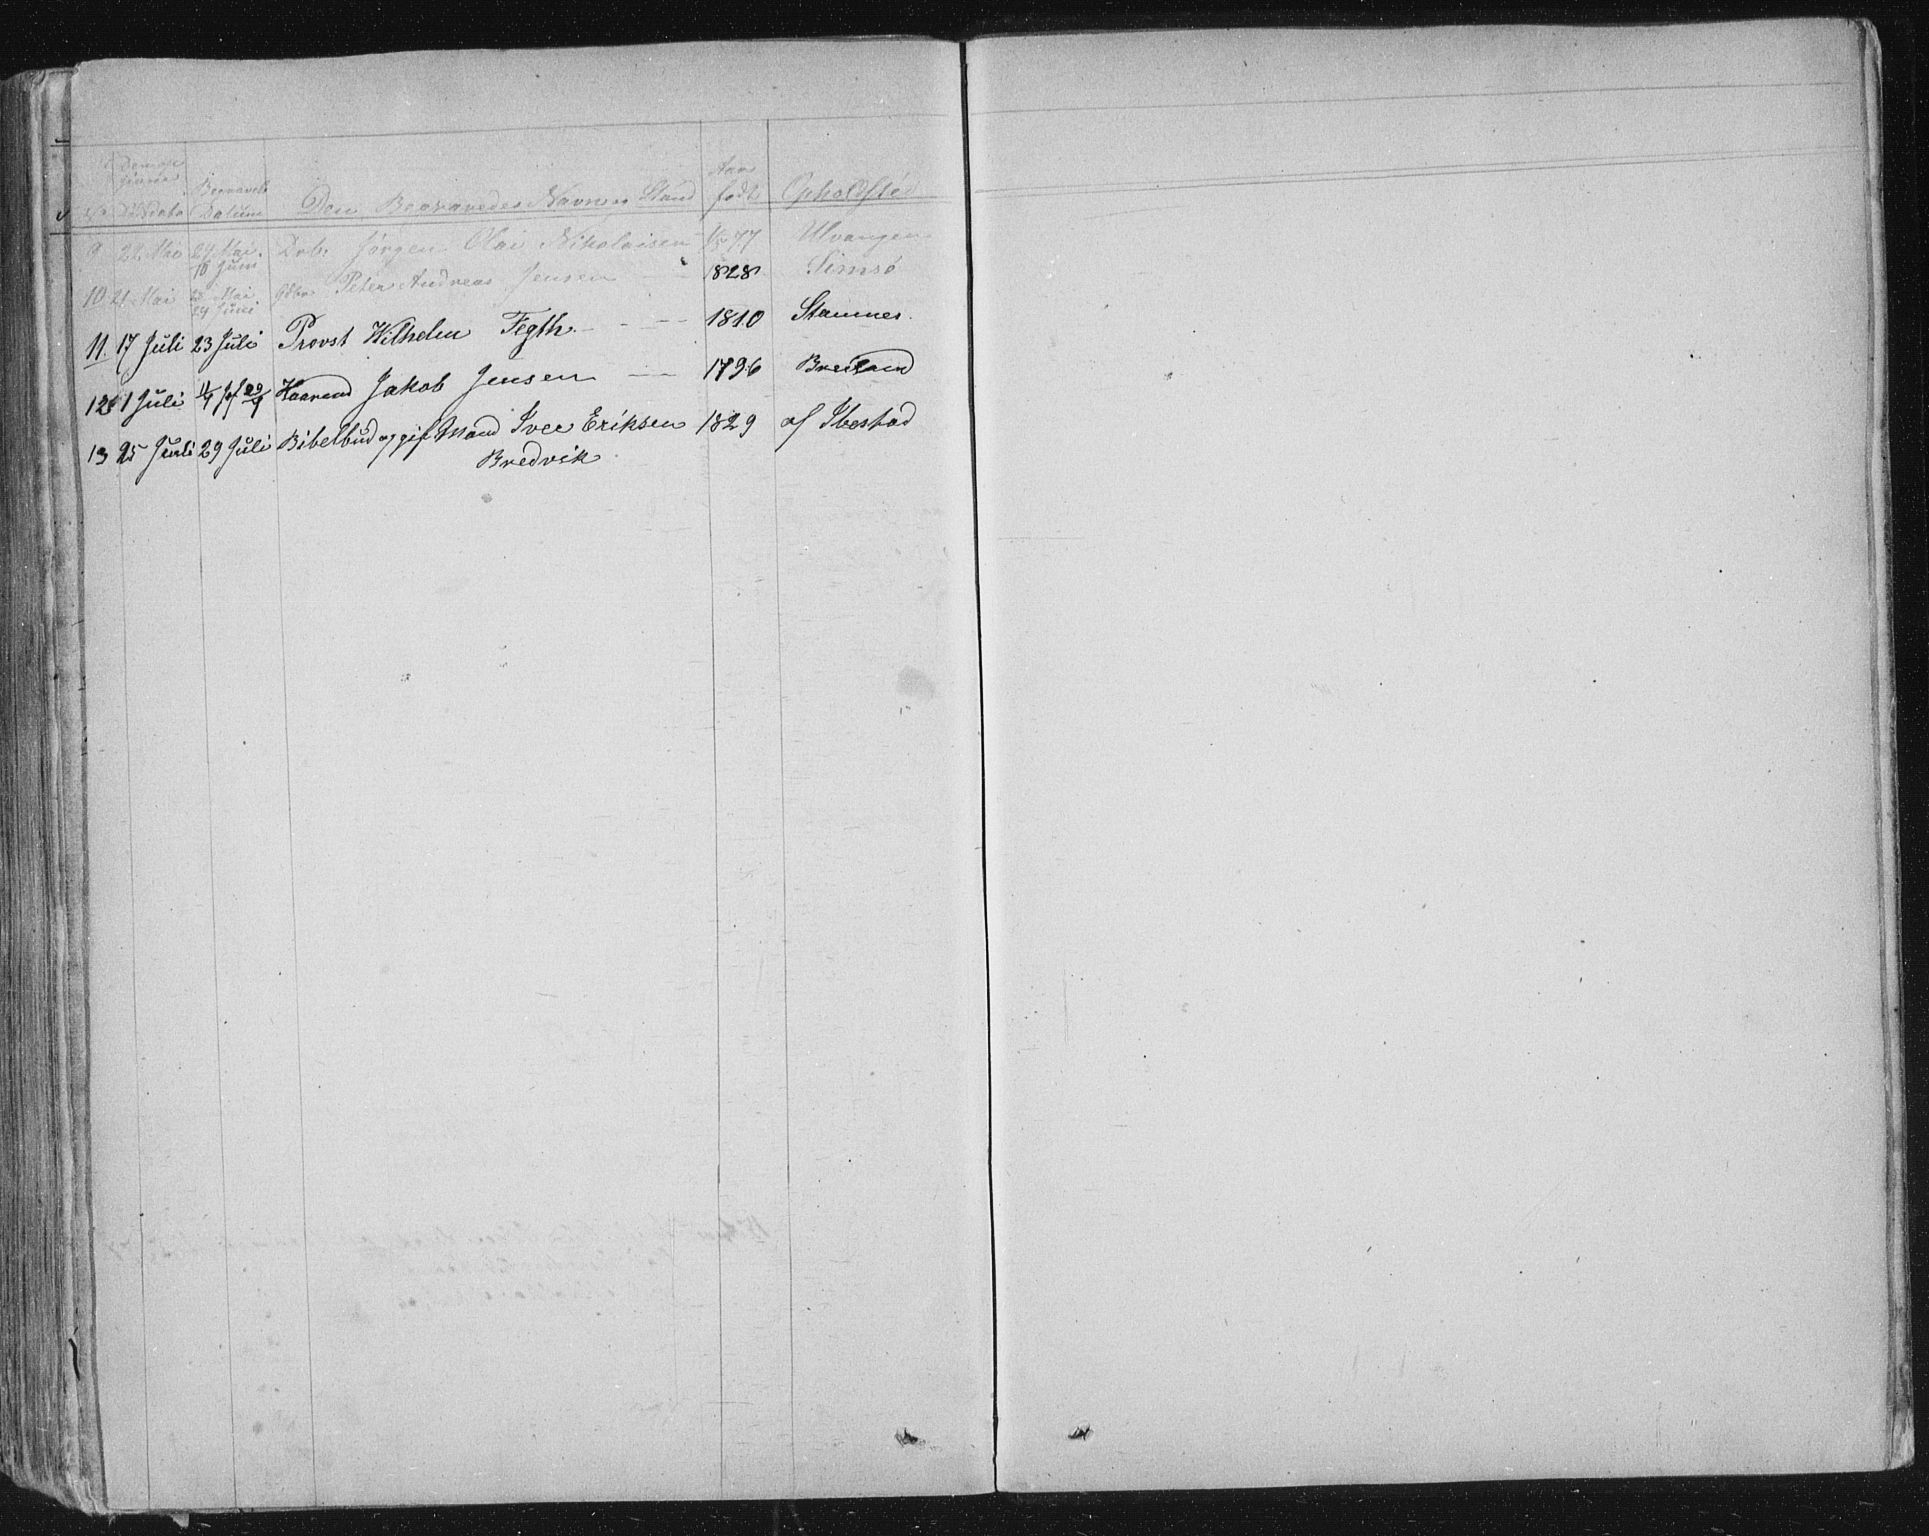 Döds Datum Den Begravedes Navn og Stand Aar født Opholdsted
9 22 Mai 24 Mai 10 Juni Drb. Jørgen Olai Nikolaisen 77 Ulvangen
10 21 Mai Mai 24 Juni Peter Andreas Jensen 1828 Simsø
11. 17 Juli 23 Juli Provst Wilhelm Fegth. - - - - 1810 Stamnes.
12 1 Juli Kaarmd Jakob Jensen - - - 1796 Breiland
13 25 Juli 29 Juli Bibelbud og gif. Mand Iver Eriksen 1829 af Ibestad
Bredvik